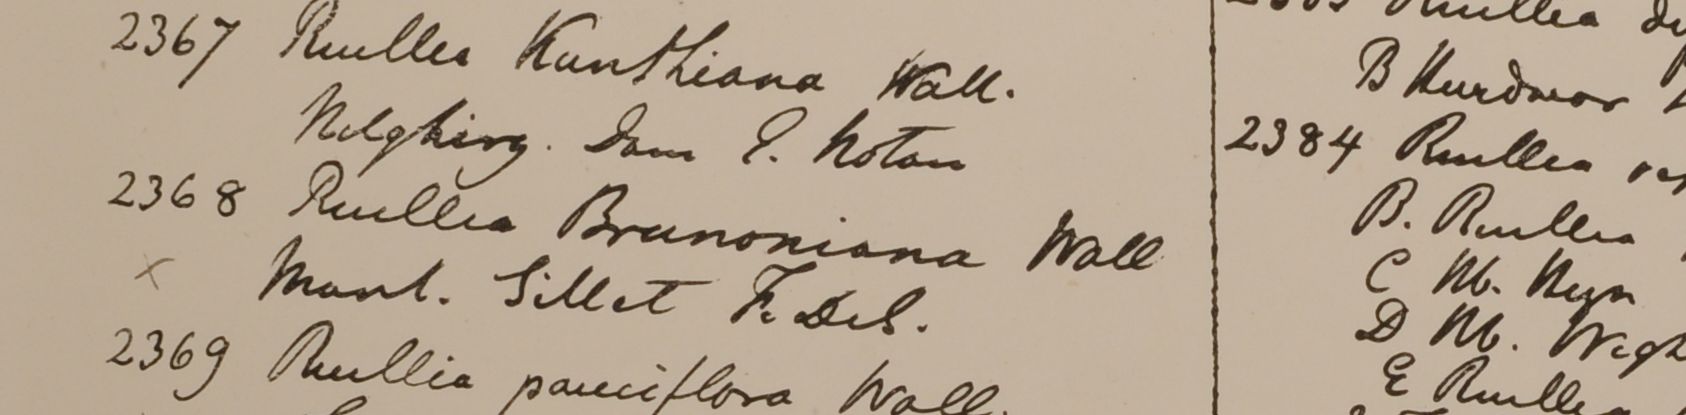 2367 Ruellia Kunthiana Wall.
Nelghiry. Dom E. Noton
2368 Ruellia Brunoniana Wall
x Mont. Sillet F. De S.
2369 Ruellia pauciflora Wall.
Ruellia
B Hurdwar
2384 Ruellia
B. Ruellia
C Hb. Heyn
D Hb. Wigh
E Ruellia